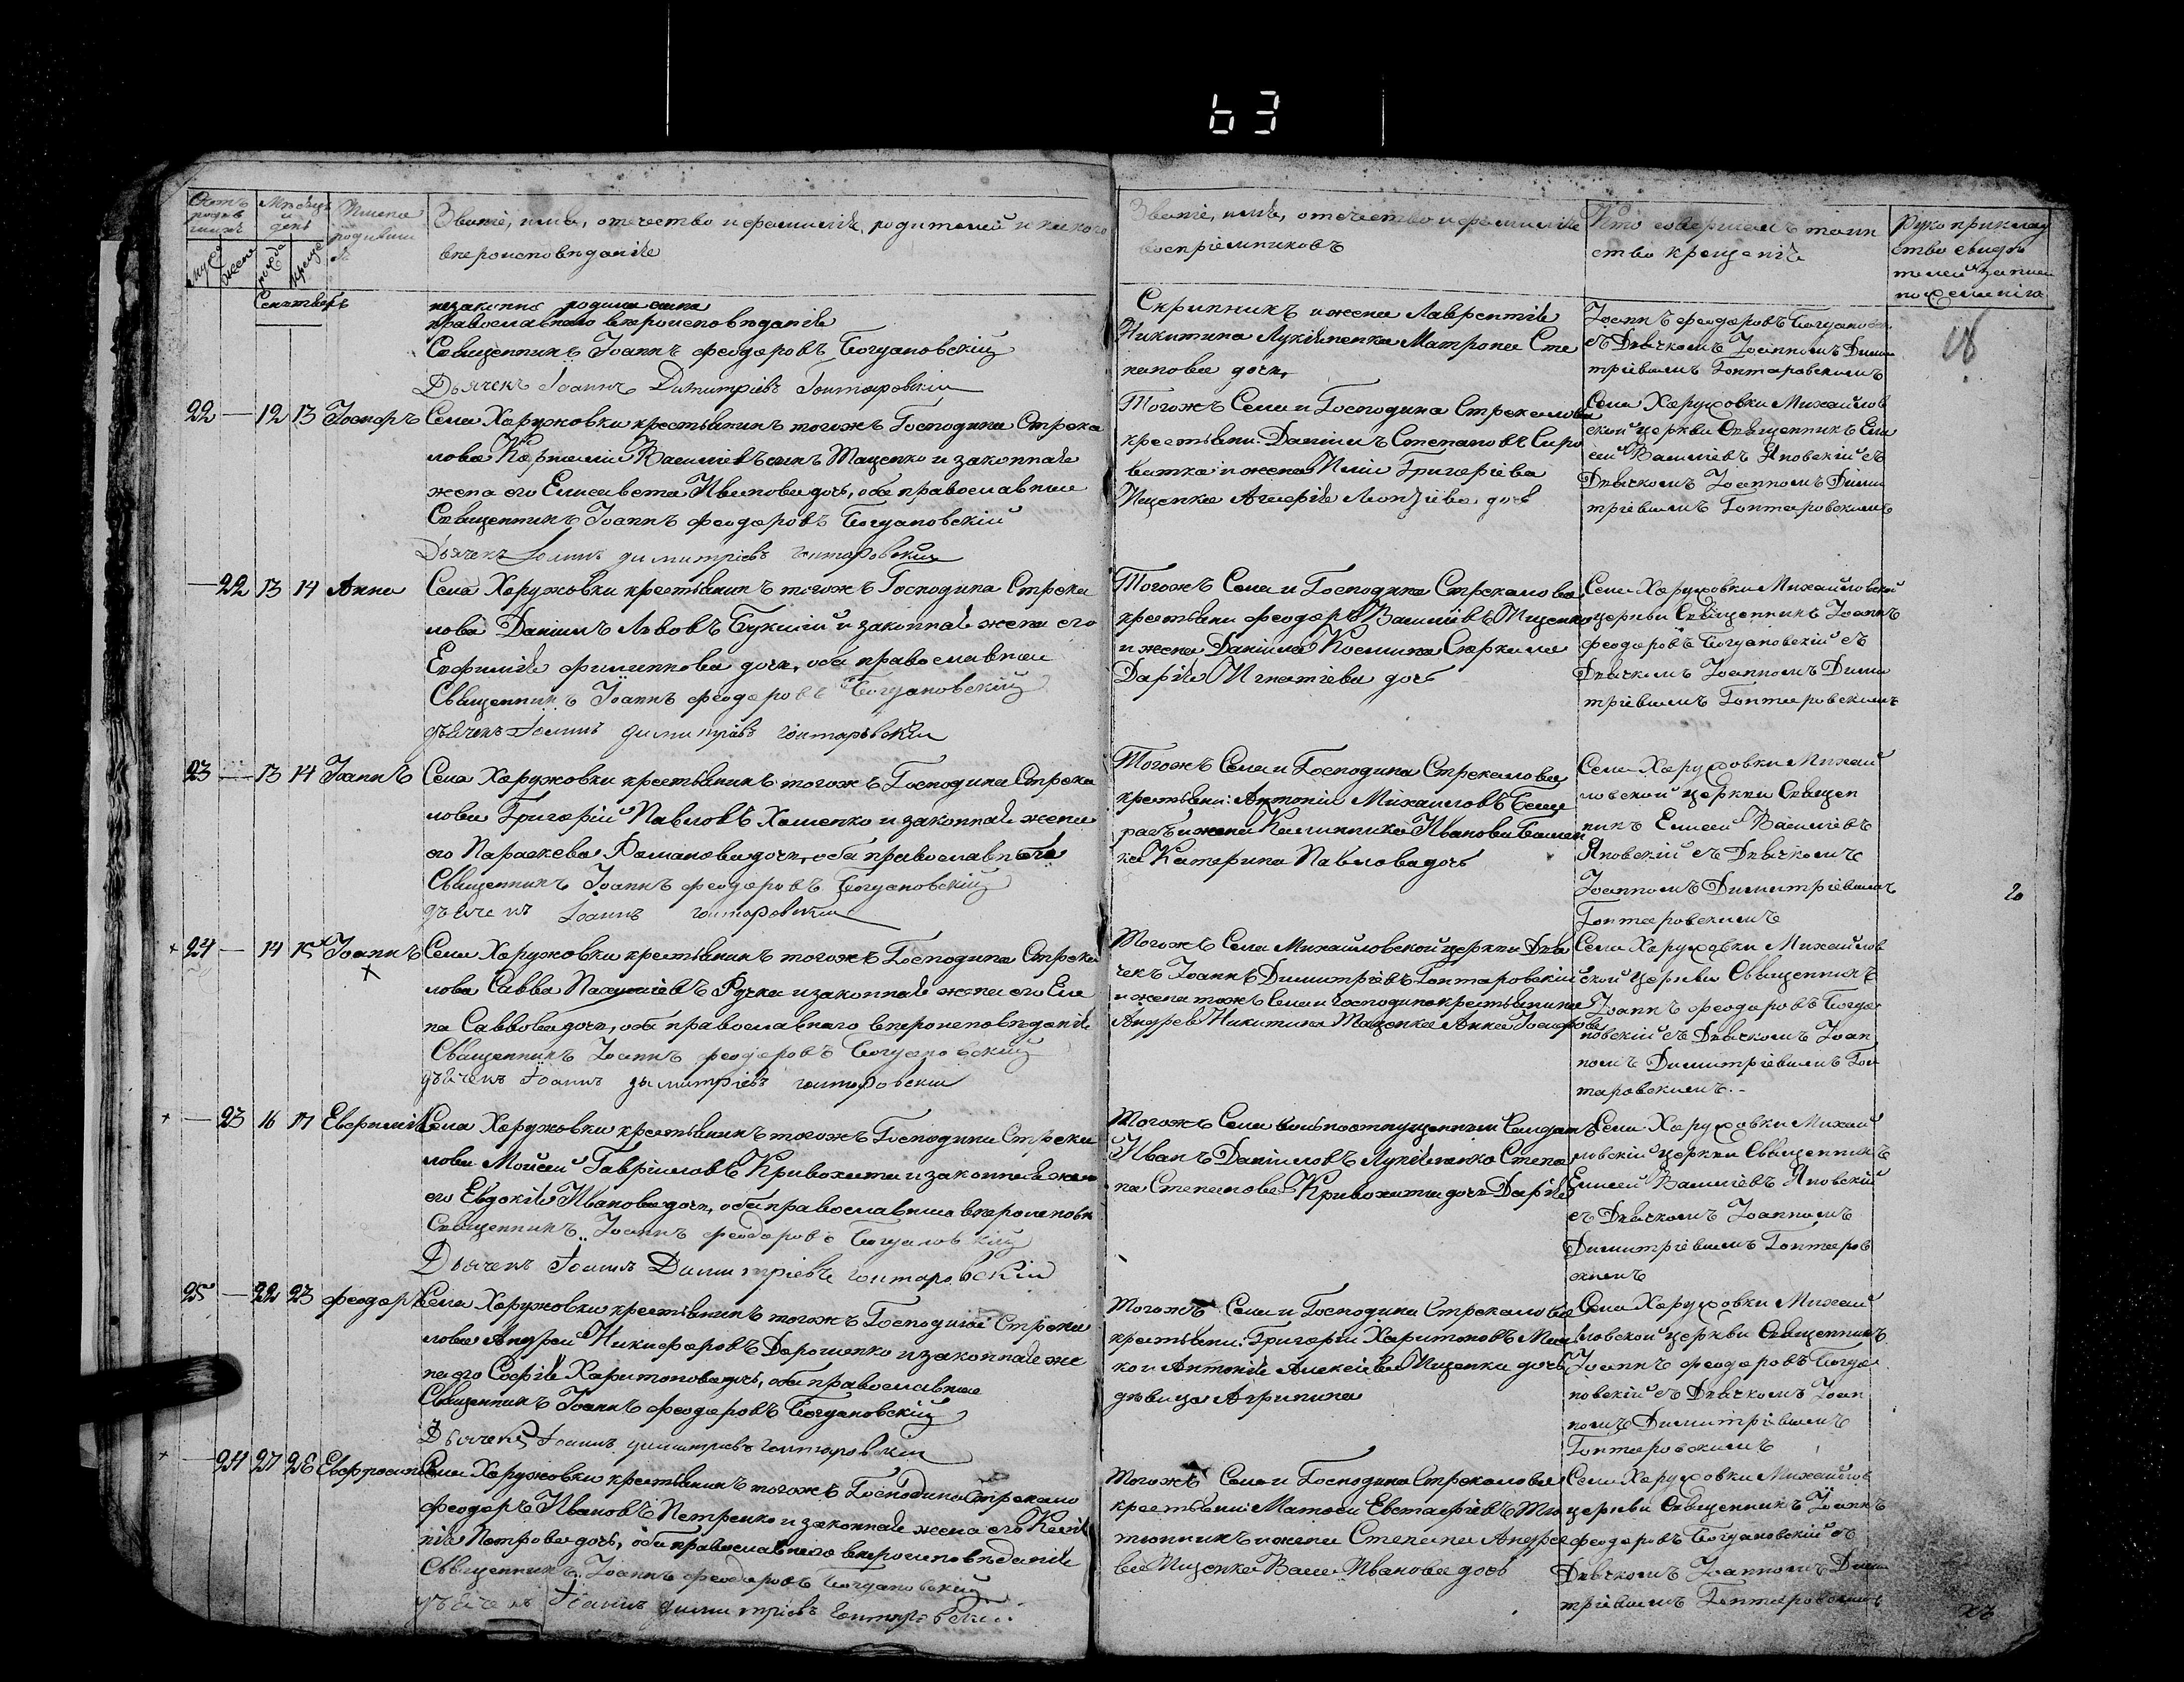 63
Счетъ родив шихъ
Мѣсяцъ и день
Имена родивших
Званіе, имя, отечество и фамилія родителей и какого
вероисповѣданія
Званіе, имя, отечество и фамилія
воспріемниковъ
Кто совершилъ таин
ство крещенія
Руко приклад
ство свидѣ
телей записи
по желанію
Сентябрь
незаконно родила сына
православнаго вероисповѣданія
Священникъ Іоаннъ Феодоровъ Богдановскій
Дьячекъ Іоаннъ Димитріевъ Гонтаровскій
Скрипникъ и жена Лаврентія
Никитина Лукіяненка Матрона Сте
панова дочь
Іоаннъ Феодоровъ Богдановскій
съ Дьячкомъ Іоанномъ Дими
тріевымъ Гонтаровскимъ
18
22 — 12 13 Іосифъ Села Харужовки крестьянинъ тогожъ Господина Стрека
лова Корнилій Василіевъ сынъ Маценко и законная
жена его Елисавета Иванова дочь, оба православные
Священникъ Іоаннъ Феодоровъ Богдановскій
Дьячекъ Іоаннъ Димитріевъ Гонтаровскій
Тогожъ Села и Господина Стрекалова
крестьяни: Даніилъ Степановъ Сиро
ватка и жена Иліи Григоріева
Ищенка Агафія Леонтіева дочь
Села Харужовки Михайлов
ской церкви Священникъ Ели
сей Василіевъ Яновскій съ
Дьячкомъ Іоанномъ Дими
тріевымъ Гонтаровскимъ
— 22 13 14 Анна Села Харужовки крестьянинъ тогожъ Господина Стрека
лова Даніилъ Львовъ Букшій и законная жена его
Евфимія Филиппова дочь, оба православные
Священникъ Іоаннъ Феодоровъ Богдановскій
дьячекъ Іоаннъ Димитріевъ Гонтаровскій
Тогожъ Села и Господина Стрекалова
крестьяни Феодоръ Василіевъ Ищенко
и жена Даніила Космина
Дарія Игнатіева дочь
Села Харужовки Михайловской
церкви Священникъ Іоаннъ
Феодоровъ Богдановскій съ
Дьячкомъ Іоанномъ Дими
тріевымъ Гонтаровскимъ
23 — 13 14 Іоаннъ Села Харужовки крестьянинъ тогожъ Господина Стрека
лова Григорій Павловъ Хоменко и законная жена
его Параскева Романова дочь, оба православныя
Священникъ Іоаннъ Феодоровъ Богдановскій
дьячекъ Іоаннъ Гонтаровскій
Тогожъ Села и Господина Стрекалова
крестьяни: Антоній Михаиловъ
и жена Калинника Иванова
Катерина Павлова дочь
Села Харужовки Михай
ловской церкви Священ
никъ Елисей Василіевъ
Яновскій съ Дьячкомъ
Іоанномъ Димитріевымъ
Гонтаровскимъ
20
+ 24 — 14 15 Іоаннъ Села Харужовки крестьянинъ тогожъ Господина Стрека
лова Савва Пахоміевъ Ручка и законная жена его Еле
на Саввова дочь, оба православнаго вероисповѣданія
Священникъ Іоаннъ Феодоровъ Богдановскій
дьячекъ Іоаннъ Димитріевъ Гонтаровскій
Тогожъ Села Михайловской церкви Дья
чекъ Іоаннъ Димитріевъ Гонтаровскій
и жена тожъ Села и господина крестьянина
Андрея Никитина Маценка Анна Іосифова
Села Харужовки Михайлов
ской церкви Священникъ
Іоаннъ Феодоровъ Богда
новскій съ Дьячкомъ Іоан
номъ Димитріевымъ Гон
таровскимъ.
+ — 23 16 17 Евфимія Села Харужовки крестьянинъ тогожъ Господина Стрека
лова Мойсей Гавріиловъ Кривохита и законная жена
его Евдокія Иванова дочь, оба православныя вероисповѣ
Священникъ Іоаннъ Феодоровъ Богдановскій
Дьячекъ Іоаннъ Димитріевъ Гонтаровскій
Тогожъ Села Солдатъ
Иванъ Даніиловъ Лукіяненко Степа
на Степанова Кривохита дочь Дарія
Села Харужовки Михай
ловскій церкви Священникъ
Елисей Василіевъ Яновскій
съ Дьячкомъ Іоанномъ
Димитріевымъ Гонтаров
скимъ
25 — 22 23 Феодоръ Села Харужовки крестьянинъ тогожъ Господина Стрека
лова Андрей Никифоровъ Дорошенко и законная же
на его Софія Харитонова дочь, оба православные
Священникъ Іоаннъ Феодоровъ Богдановскій
Дьячекъ Іоаннъ Димитріевъ Гонтаровскій
Тогожъ Села и Господина Стрекалова
крестьяни: Григорій Харитоновъ
и Антонія Алексіева Ищенка дочь
дѣвица Агрипина
Села Харужовки Михай
ловской церкви Священникъ
Іоаннъ Феодоровъ Богда
новскій съ Дьячкомъ Іоан
номъ Димитріевымъ
Гонтаровскимъ
+ — 24 27 28 Евфросинія Села Харужовки крестьянинъ тогожъ Господина Стрекало
Феодоръ Ивановъ Петренко и законная жена его Ксе
нія Петрова дочь, оба православнаго вероисповѣданія
Священникъ Іоаннъ Феодоровъ Богдановскій
дьячекъ Іоаннъ Димитріевъ Гонтаровскій
Тогожъ Села и Господина Стрекалова
крестьяни: Матфей Евстафіевъ
и жена Степана Андрее
ва Ищенка Васса Иванова дочь
Села Харужовки Михайлов
церкви Священникъ Іоаннъ
Феодоровъ Богдановскій съ
Дьячкомъ Іоанномъ Дими
тріевымъ Гонтаровскимъ